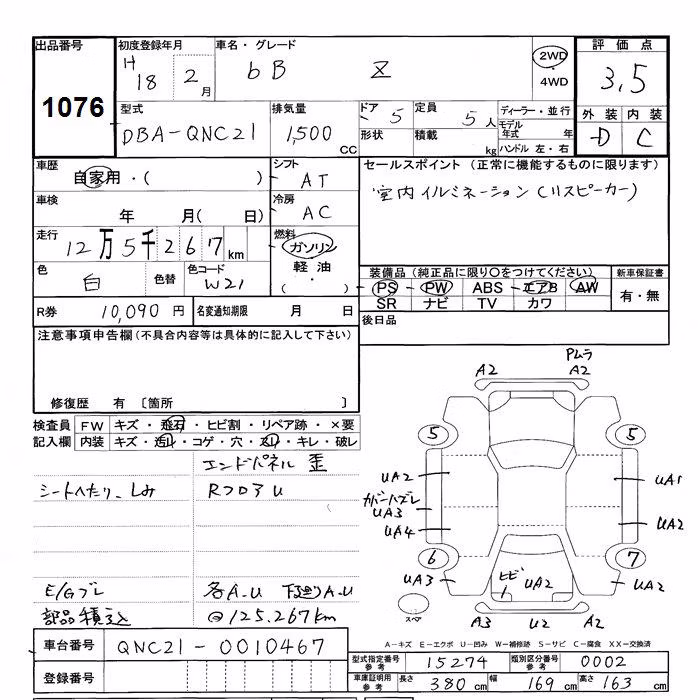 出品番号 初度登録年月 車名・グレード 評価点
1076 H 18年 2月 bB Z 2WD・4WD 3.5
型式 排気量 ドア 5 定員 5人 ディーラー・並行 外装 内装
DBA-QNC21 1,500 CC 形状 積載 kg モデル年式 年 ハンドル 左・右 D C
車歴 自家用・( ) シフト AT セールスポイント(正常に機能するものに限ります)
車検 年 月( 日) 冷房 AC 室内イルミネーション(11スピーカー)
走行 12万5千267km 燃料 ガソリン 軽油・( )
色 白 色替 色コード W21 装備品(純正品に限り○をつけてください) 新車保証書
PS PW ABS エアB AW 有・無
SR ナビ TV カワ
R券 10,090円 名変通知期限 月 日 後日品
注意事項申告欄(不具合内容等は具体的に記入して下さい)
修復歴 有 〔箇所 〕
検査員 FW キズ・飛石・ヒビ割・リペア跡・×要
記入欄 内装 キズ・汚れ・コゲ・穴・スレ・キレ・破レ
エンドパネル 歪
シートへたり、しみ RフロアU
E/Gブレ 各A.U 下廻りA.U
部品積込 @125.267km
A2 A2
5 5
UA2 UA1
カバーハズレ
UA3 UA2
UA4
6 7
UA3 ヒビ UA2 UA2
スペア A3 U2 A2
A-キズ E-エクボ U-凹み W-補修跡 S-サビ C-腐食 XX-交換済
車台番号 QNC21-0010467
型式指定番号 参考 15274 類別区分番号 参考 0002
登録番号
車庫証明用 参考 長さ 380cm 幅 169cm 高さ 163cm